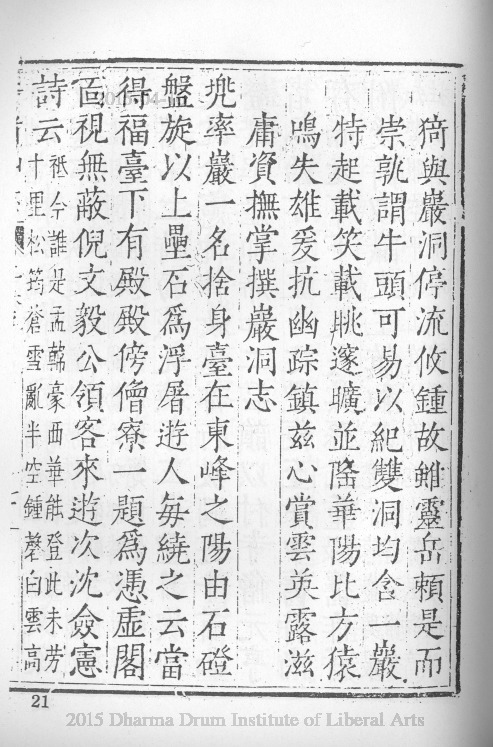 猗與巖洞停流攸鍾故雖靈岳賴是而
崇孰謂牛頭可易以紀雙洞均含一巖
特起載笑載眺邃曠並隆華陽比方猿
鳴失雄爰抗幽踪鎮茲心賞雲英露滋
庸資撫掌撰巖洞志
兠率巖一名捨身臺在東峰之陽由石磴
盤旋以上壘石為浮屠遊人毎繞之云當
得福臺下有殿殿傍僧寮一題為憑虛閣
靣視無蔽倪文毅公領客來遊次沈僉憲
詩云祗今誰是孟韓豪西華能登此未勞
十里松筠蒼雪亂半空鍾磬白雲高
21
2015 Dharma Drum Institute of Liberal Arts